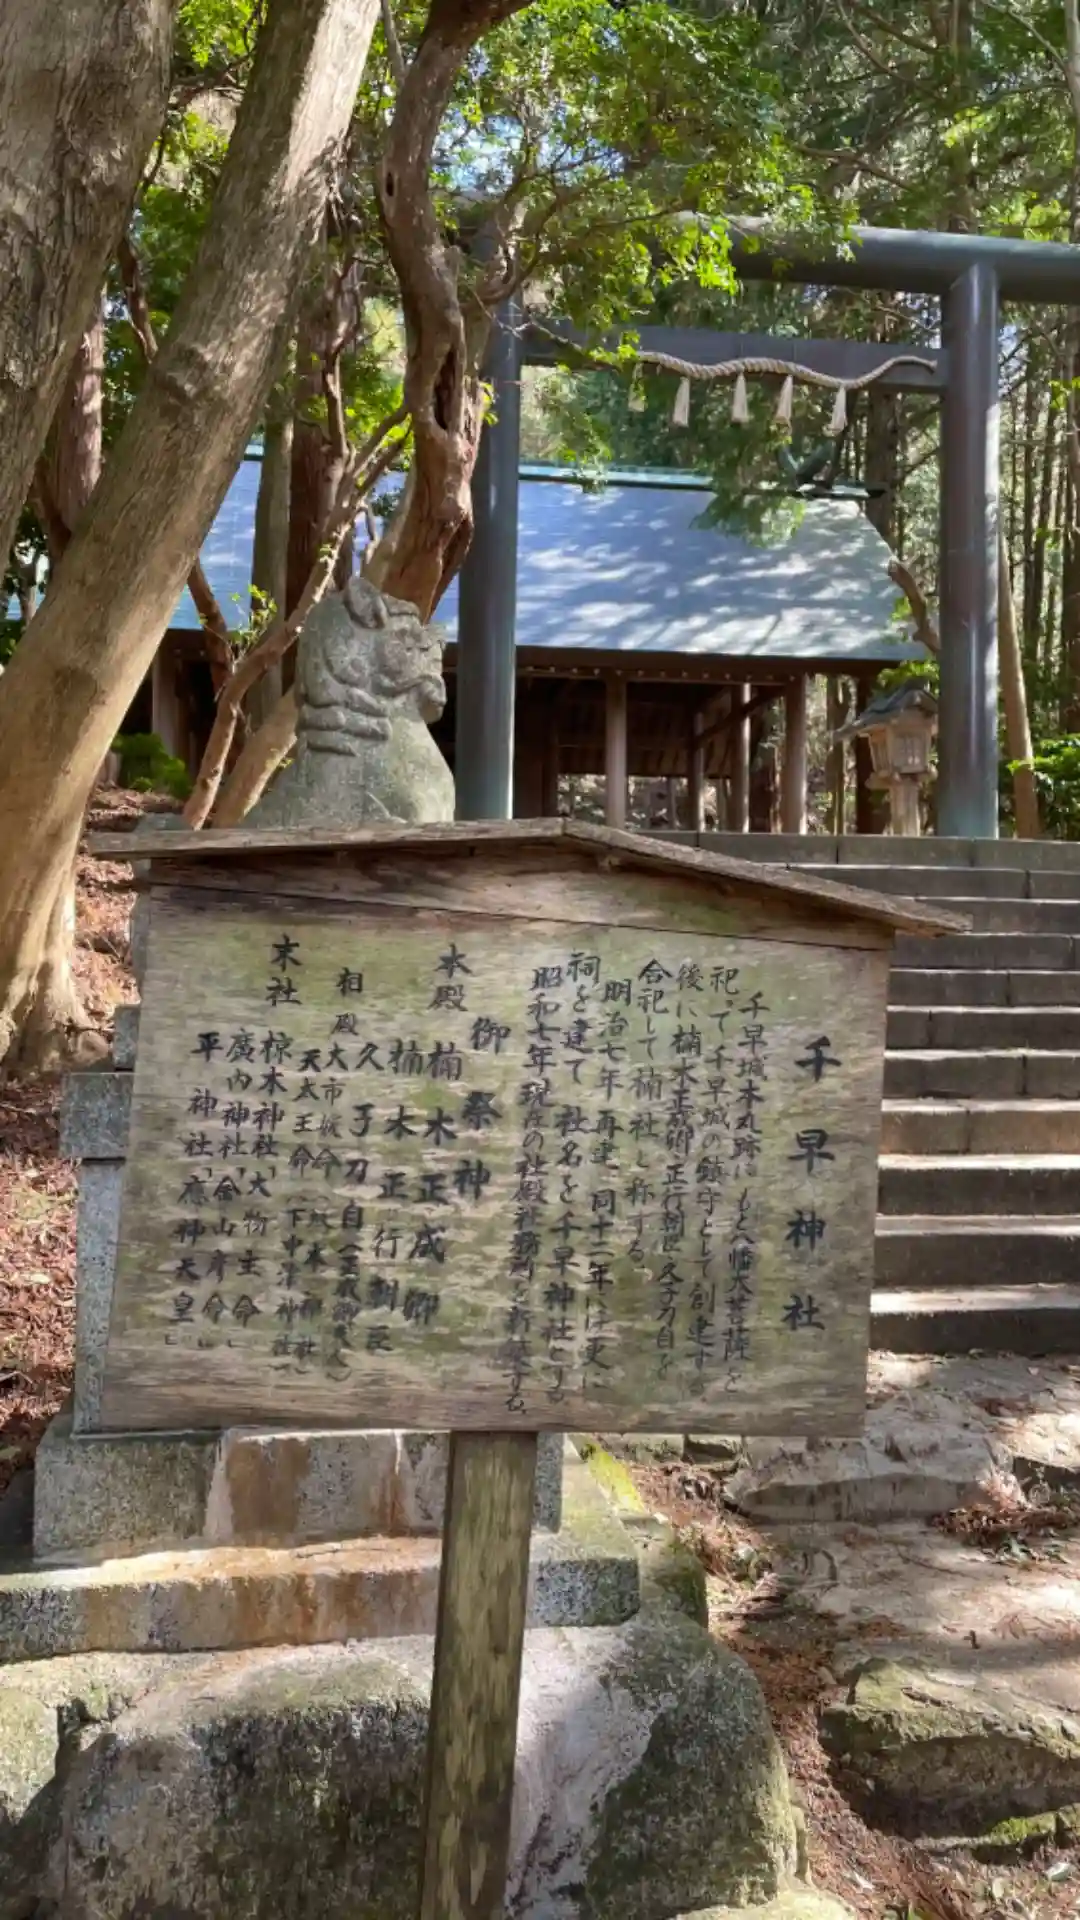 千早神社
千早城本丸跡に もと八幡大菩薩を
祀って千早城の鎮守として創建する
後に楠木正成卿 正行朝臣 久子刀自を
合祀して楠社と称する。
明治七年再建、同十二年には更に
祠を建て 社名を千早神社とする
昭和七年現在の社殿社務所を新築する。
御祭神
本殿 楠木正成卿
楠木正行朝臣
久子刀自(正成卿夫人)
相殿 大市媛命
天太王命(下中津神社)
末社 椋木神社「大物主命」
廣内神社「金山彦命」
平神社「應神天皇」